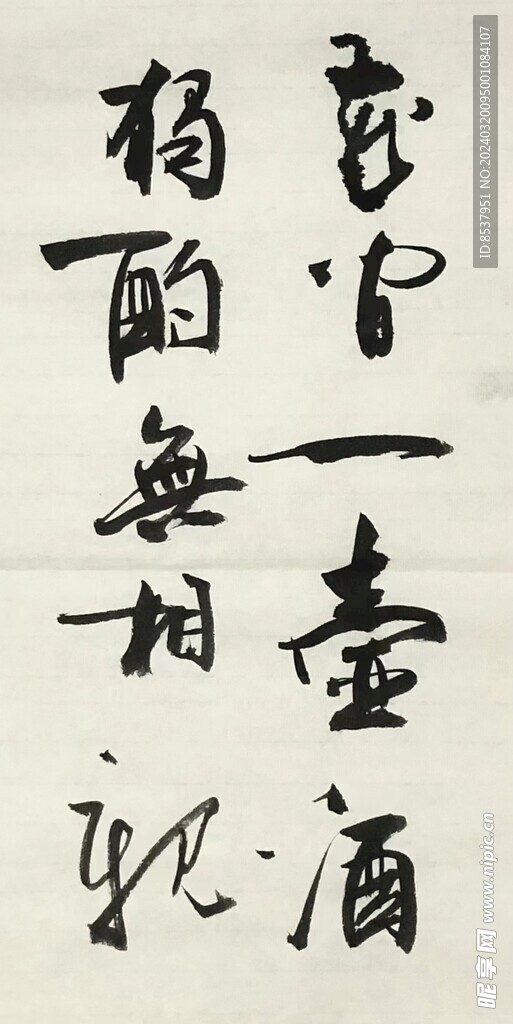 花间一壶酒
獨酌無相親
ID:8537951 NO:20240320095001084107
昵享网 www.nipic.cn